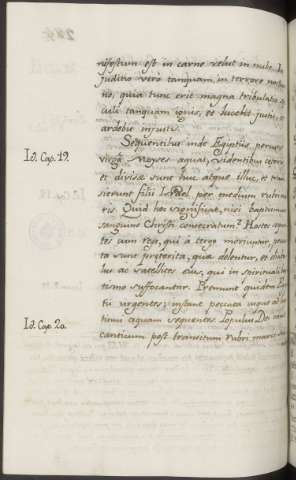 nifestum est in carne velut in nube. In
juditio vero tanquam in terrore noctis
quia tunc erit magna tribulatio
culi tanquam ignis, et lucebit justis, et
ardebit injustis.
Id. Cap. 19. Sequentibus inde Egiptiis, percussit
virga Moyses aquas, videntibus ceteris
et divisæ sunt huc atque illuc, et tran
sierunt filii Israel per medium rubri ma
ris. Quid hoc significat, nisi baptismum
sanguine Christi consecratum? Hostes
tes cum rege, qui à tergo moriuntur, pecca
ta sunt præterita, quæ delentur, et diabo
lus ac satellites eius, qui in spirituali ba
tismo suffocantur. Premunt quidem
tii urgentes; instant peccata usque ad
timi aquam sequentes. Populus Dei
Id. Cap. 20. canticum post transitum rubri maris